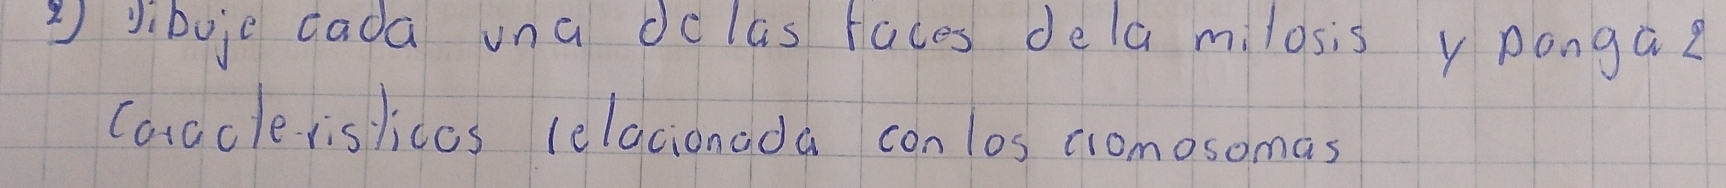 2) Dibuje cada una de las faces dela mitosis y ponga 2
Caracteristicas relacionada con los cromosomas